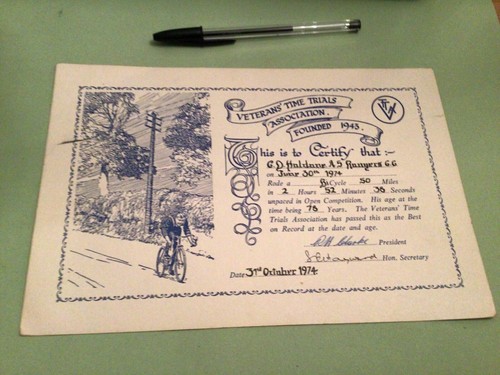 VETERANS' TIME TRIALS
ASSOCIATION.
FOUNDED 1943.
This is to Certify that :-
G.D. Haldane A.5 Rangers C.C
on June 30th 1974
Rode a Bicycle 50 Miles
in 2 Hours 52 Minutes 38 Seconds
unpaced in Open Competition. His age at the
time being 76 Years. The Veterans' Time
Trials Association has passed this as the Best
on Record at the date and age.
President
Hon. Secretary
Date 31st October 1974